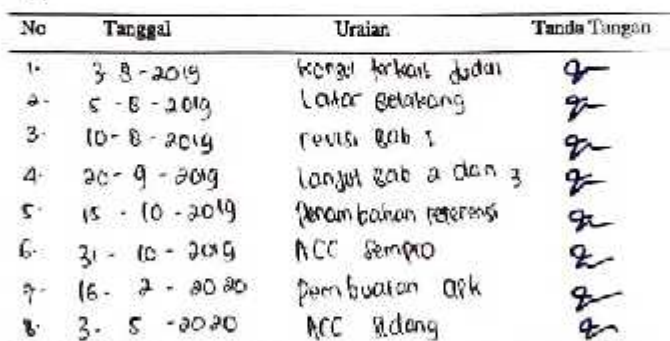 No Tanggal Uraian Tanda Tangan
1. 3-8-2019 Konsul terkait Judul
2. 5-8-2019 Latar Belakang
3. 10-8-2019 revisi Bab 1
4. 20-9-2019 Lanjut Bab 2 dan 3
5. 15-10-2019 Penambahan referensi
6. 31-10-2019 ACC Sempro
7. 16-2-2020 Pembuatan apk
8. 3-5-2020 ACC Sidang